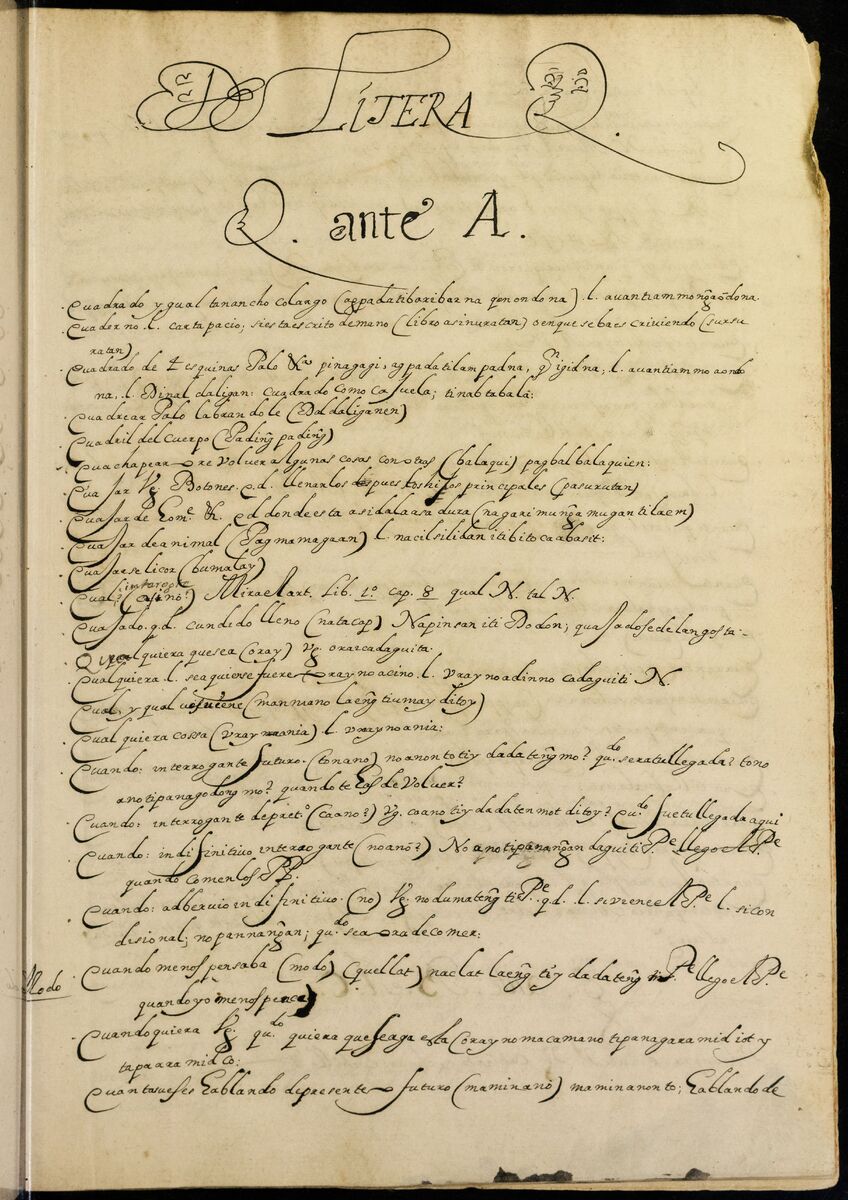 De LITERA Q.
Q. ante A.
Quadrado ygual tanancho colargo (agpadatibaribar na qenondona) l. auantiammong̃aōdona.
Quaderno l. cartapacio; siestaescrito demano (libro asinuratan) oenquesebaescriviendo (sursu
ratan)
Quadrado de 4 esquinas Palo &a pinagagi, agpadatilampadna, l. auantiammoaonδ
na, l. Dinaldaligan: Quadrado como Casuela; tinabtabalā:
Quadrear Palo labrandole (Daldaliganen)
Quadril del Cuerpo (Pading̃pading̃)
Quachapear o revolver Algunas cosas con otras (balaqui) pagbalbalaquien:
Quajar Vg. Botones. q.d. llenarlos despues los hilos principales (pasurutan)
Quajar de Home &. q.d donde esta asida la asadura (nagarimung̃amugantilrem)
Quajar de animal (Pagmamagaan) l. nacilsilidan itibitocaabasit:
Quajarse licor (bumalay)
Qual? interogte (asino?) Mira el art. Lib. 1o. cap. 8 qual N. tal N.
Quajado. q.d. cundido lleno (natacap) Napinsan iti Dodon; quajadose de langosta:-
Qualquiera quesea (oray) Vg oraicadaguita.
Qualquiera. l. sea quiense fuere Oraynoasino. l. Vraynoadinno cadaguiti N.
Qual, y qual viene (manmano laeng̃ tiumay ditoy)
Qual quiera cossa (Vraynoania) l. Vraynoania:
Quando: interrogante futuro. (tonano) noanonto tiy dadateng̃mo? qudo. sera tu llegada? tono
ano tipanagodong mo? quando te has de Volver?
Quando: interrogante depreto. (caano?) Vg. coano tiy dadatenmot ditoy? qudo. fue tu llegada aqui
Quando: indifinitivo interrogante (noano?) No anotipanang̃an daguiti Pe llego el Pe.
quando comen los PP.
Quando: adbervio indifinitivo. (no) Vg. nodumateng̃ ti Pe q.d. l. si viene el Pe l. si con
disional; nopannang̃an; qudo. sea ora de comer:
Modo
Quando menos pensaba (modo) (quellat) naclat laeng̃ tiy dadateng̃ ti Pe llego el Pe
quando yo menos pence)
Quandoquiera Vg. qudo. quiera que se aga esta (oraynomacamano tipanagaramid iot y
tapaaramidco:
Quantas veses hablando depresente o futuro (maminano) maminanonto; hablando de